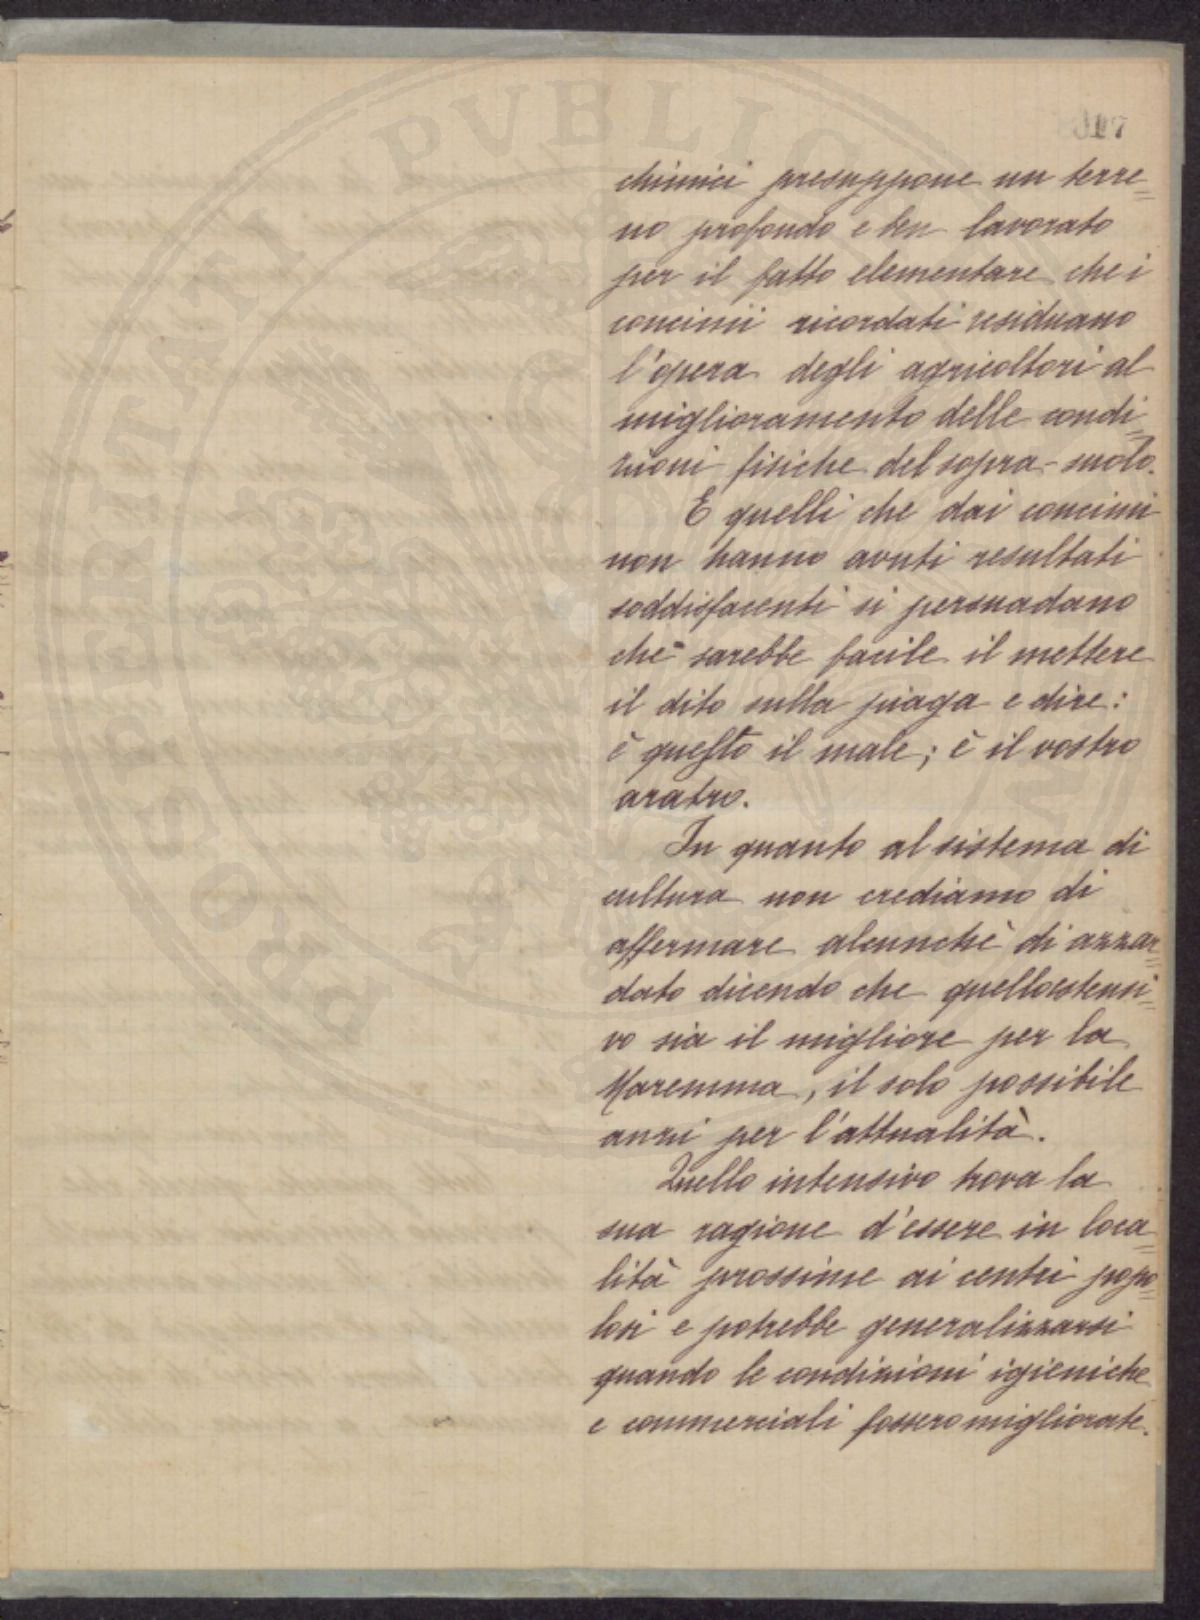 PROSPERITATI PVBLICAE
117
chimici presuppone un terre=
no profondo e ben lavorato
per il fatto elementare che i
concimii ricordati residuano
l'opera degli agricoltori al
miglioramento delle condi=
zioni fisiche del sopra-suolo.
E quelli che dai concimi
non hanno avuti resultati
soddisfacenti si persuadano
che sarebbe facile il mettere
il dito sulla piaga e dire:
è questo il male; è il vostro
aratro.
In quanto al sistema di
cultura non crediamo di
affermare alcunchè di azzar=
dato dicendo che quello estensi=
vo sia il migliore per la
Maremma, il solo possibile
anzi per l'attualità.
Quello intensivo trova la
sua ragione d'essere in loca=
lità prossime ai centri popo=
losi e potrebbe generalizzarsi
quando le condizioni igieniche
e commerciali fossero migliorate.